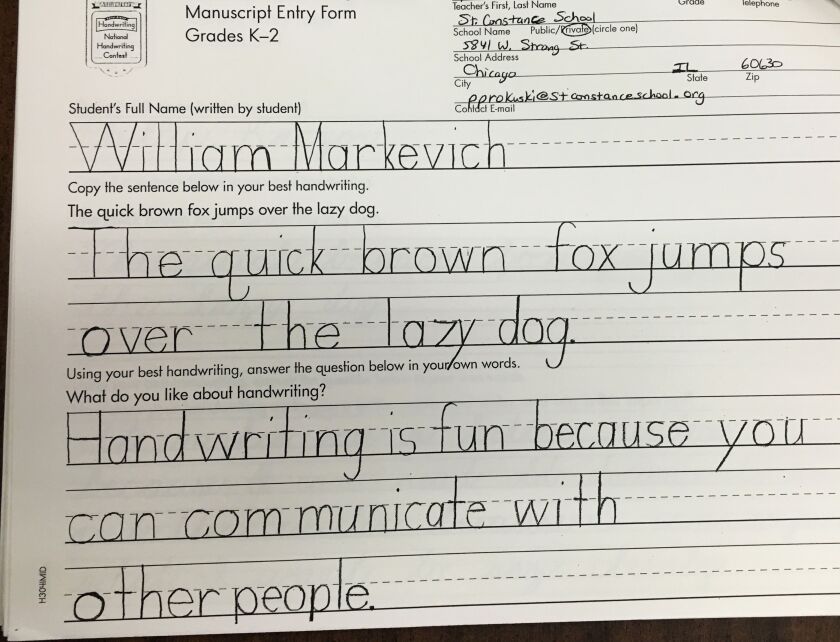 Handwriting
National
Handwriting
Contest
Manuscript Entry Form
Grades K–2
Teacher's First, Last Name
Grade
Telephone
St. Constance School
School Name Public/Private (circle one)
5841 W. Strong St.
School Address
Chicago IL 60630
City State Zip
pprokuski@stconstanceschool.org
Contact E-mail
Student's Full Name (written by student)
William Markevich
Copy the sentence below in your best handwriting.
The quick brown fox jumps over the lazy dog.
The quick brown fox jumps
over the lazy dog.
Using your best handwriting, answer the question below in your own words.
What do you like about handwriting?
Handwriting is fun because you
can communicate with
other people.
H304IMID